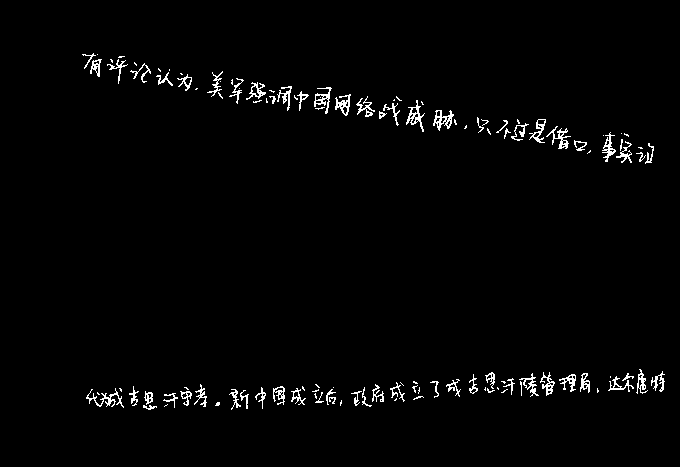 有评论认为,美军强调中国网络战威胁,只不过是借口,事实证
代成吉思汗守孝。新中国成立后,政府成立了成吉思汗陵管理局,达尔扈特